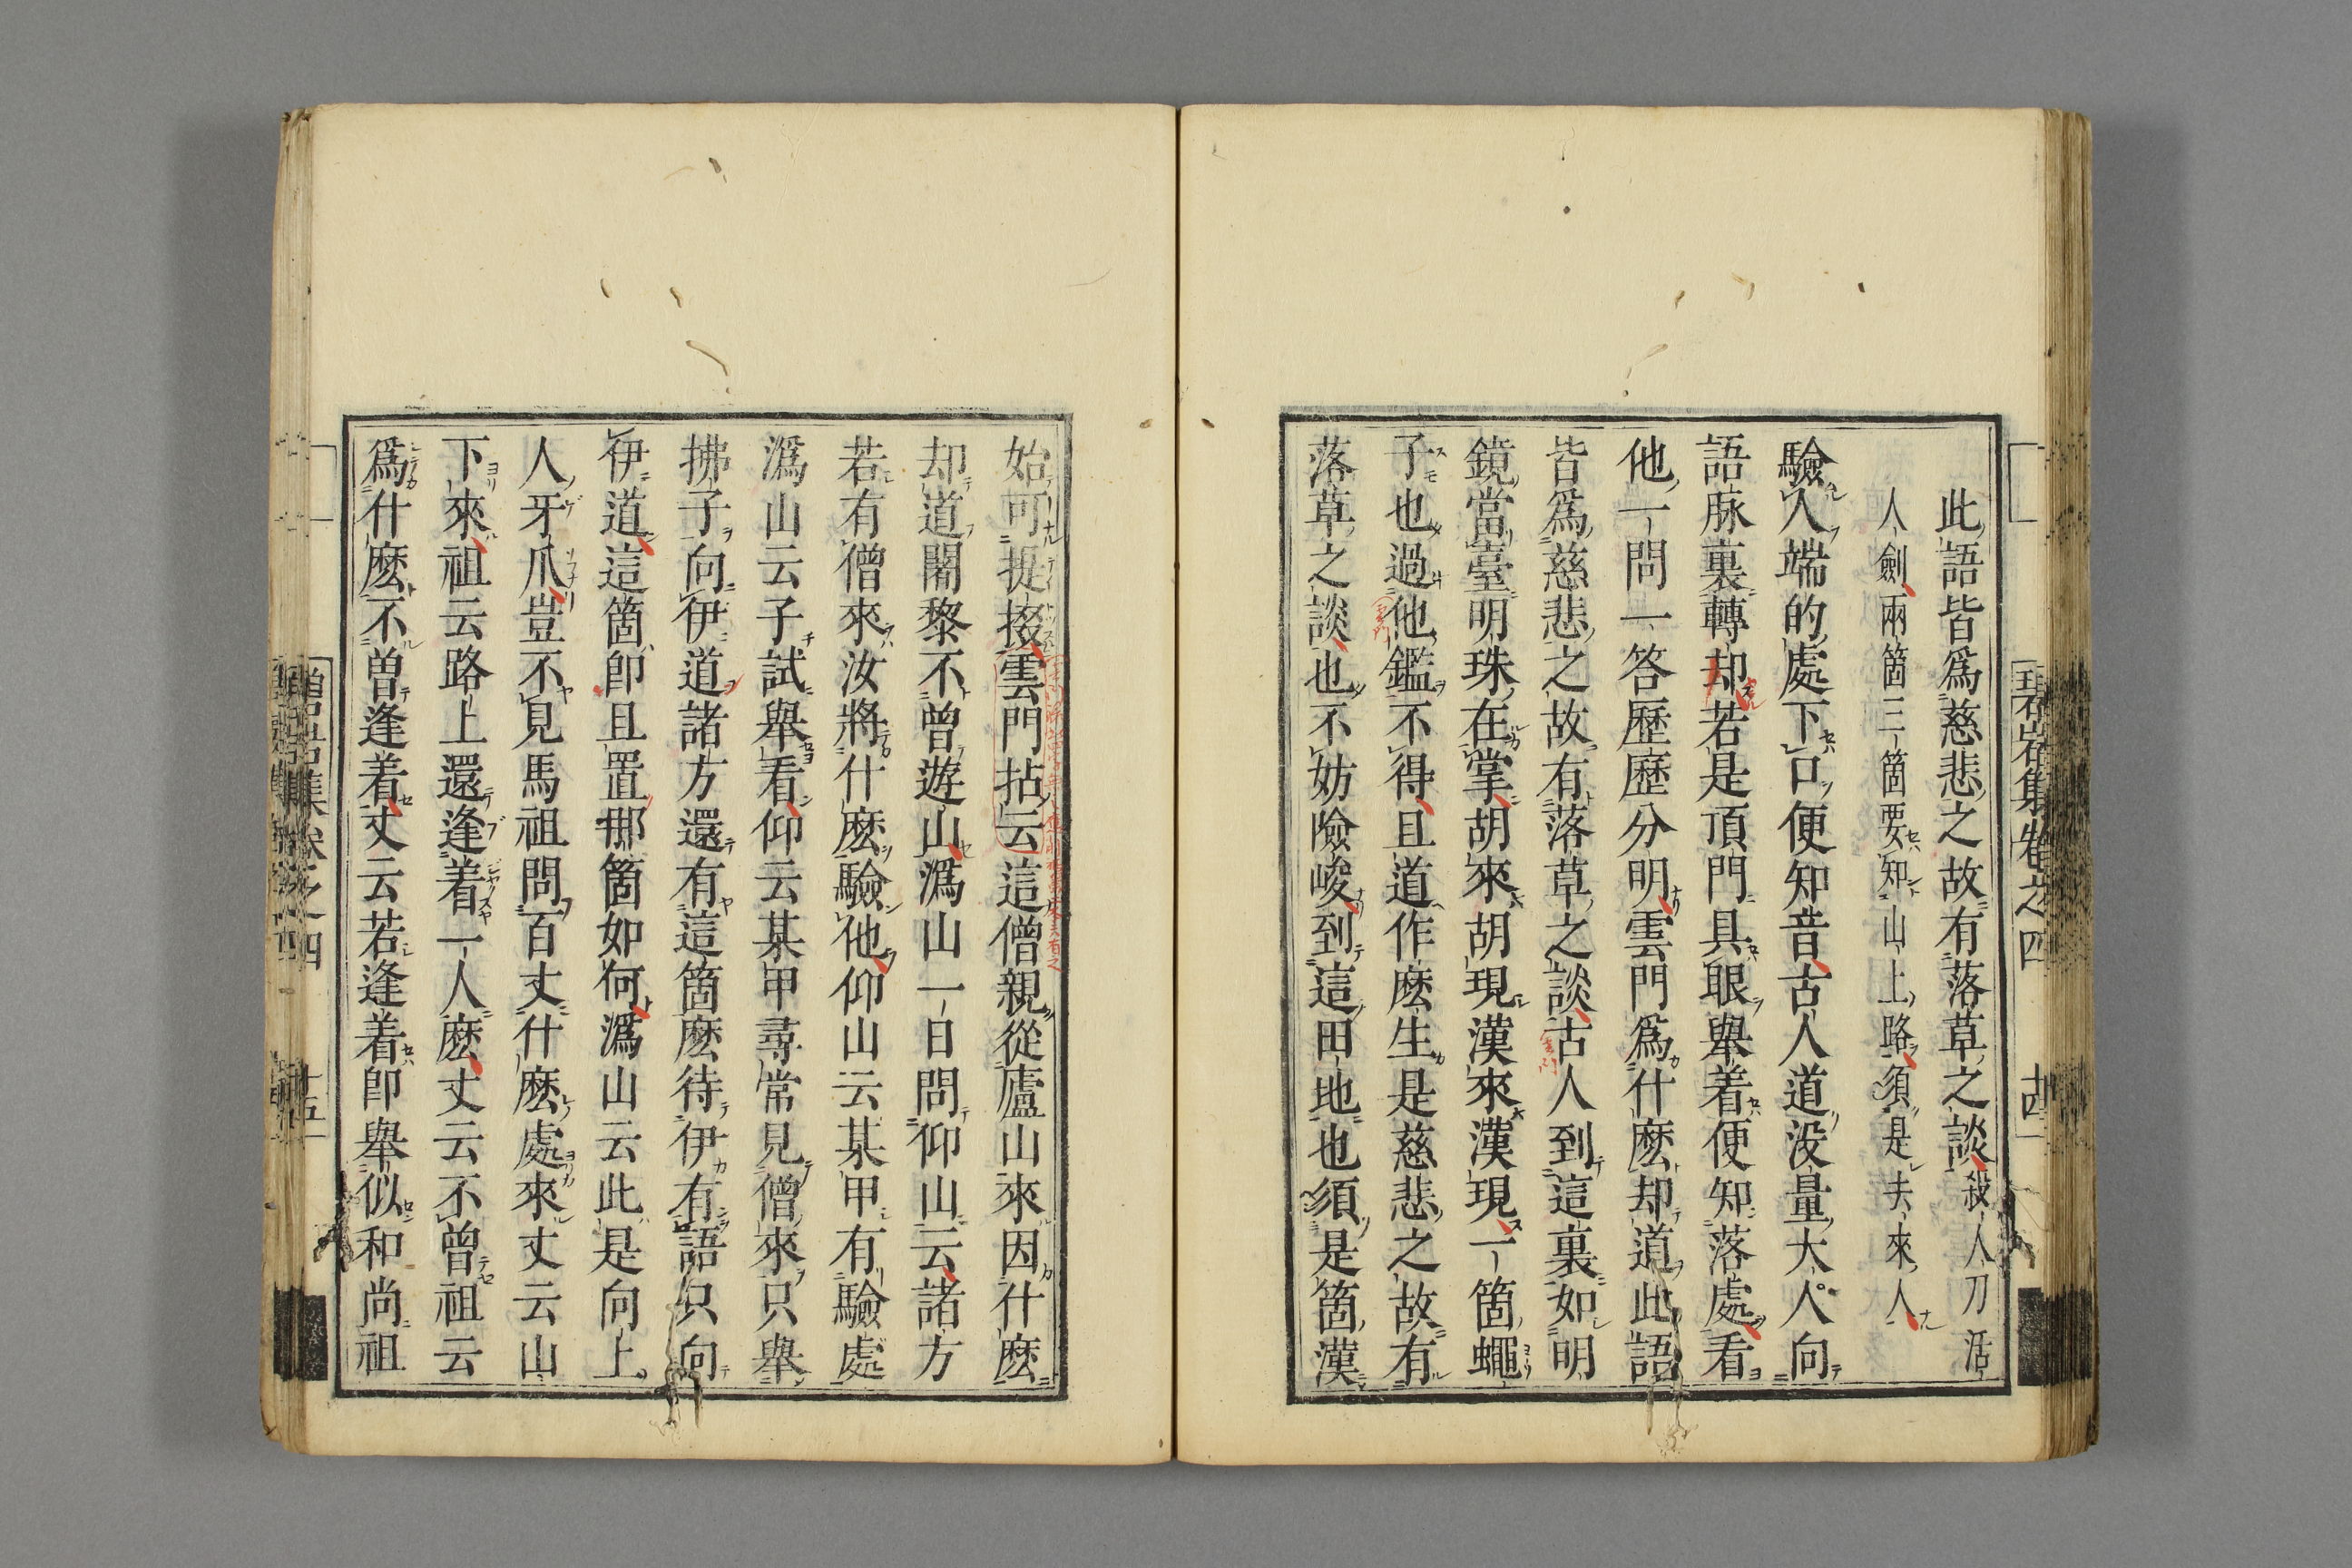 此語皆爲慈悲之故有落草之談殺人刀活
人劍兩箇三箇要知山上路須是去來人
驗人端的處下口便知音古人道没量大人向
語脉裏轉却若是頂門具眼舉着便知落處看
他一問一答歷歷分明雲門爲什麽却道此語
皆爲慈悲之故有落草之談古人到這裏如明
鏡當臺明珠在掌胡來胡現漢來漢現一箇蠅
子也過他鑑不得且道作麽生是慈悲之故有
落草之談也不妨險峻到這田地也須是箇漢
碧岩集卷之四 十四
始可提掇雲門拈云這僧親從廬山來因什麽
却道闍黎不曾遊山潙山一日問仰山云諸方
若有僧來汝將什麽驗他仰山云某甲有驗處
潙山云子試舉看仰云某甲尋常見僧來只舉
拂子向伊道諸方還有這箇麽待伊有語只向
伊道這箇即且置那箇如何潙山云此是向上
人牙爪豈不見馬祖問百丈什麽處來丈云山
下來祖云路上還逢着一人麽丈云不曾祖云
爲什麽不曽逢着丈云若逢着即舉似和尚祖